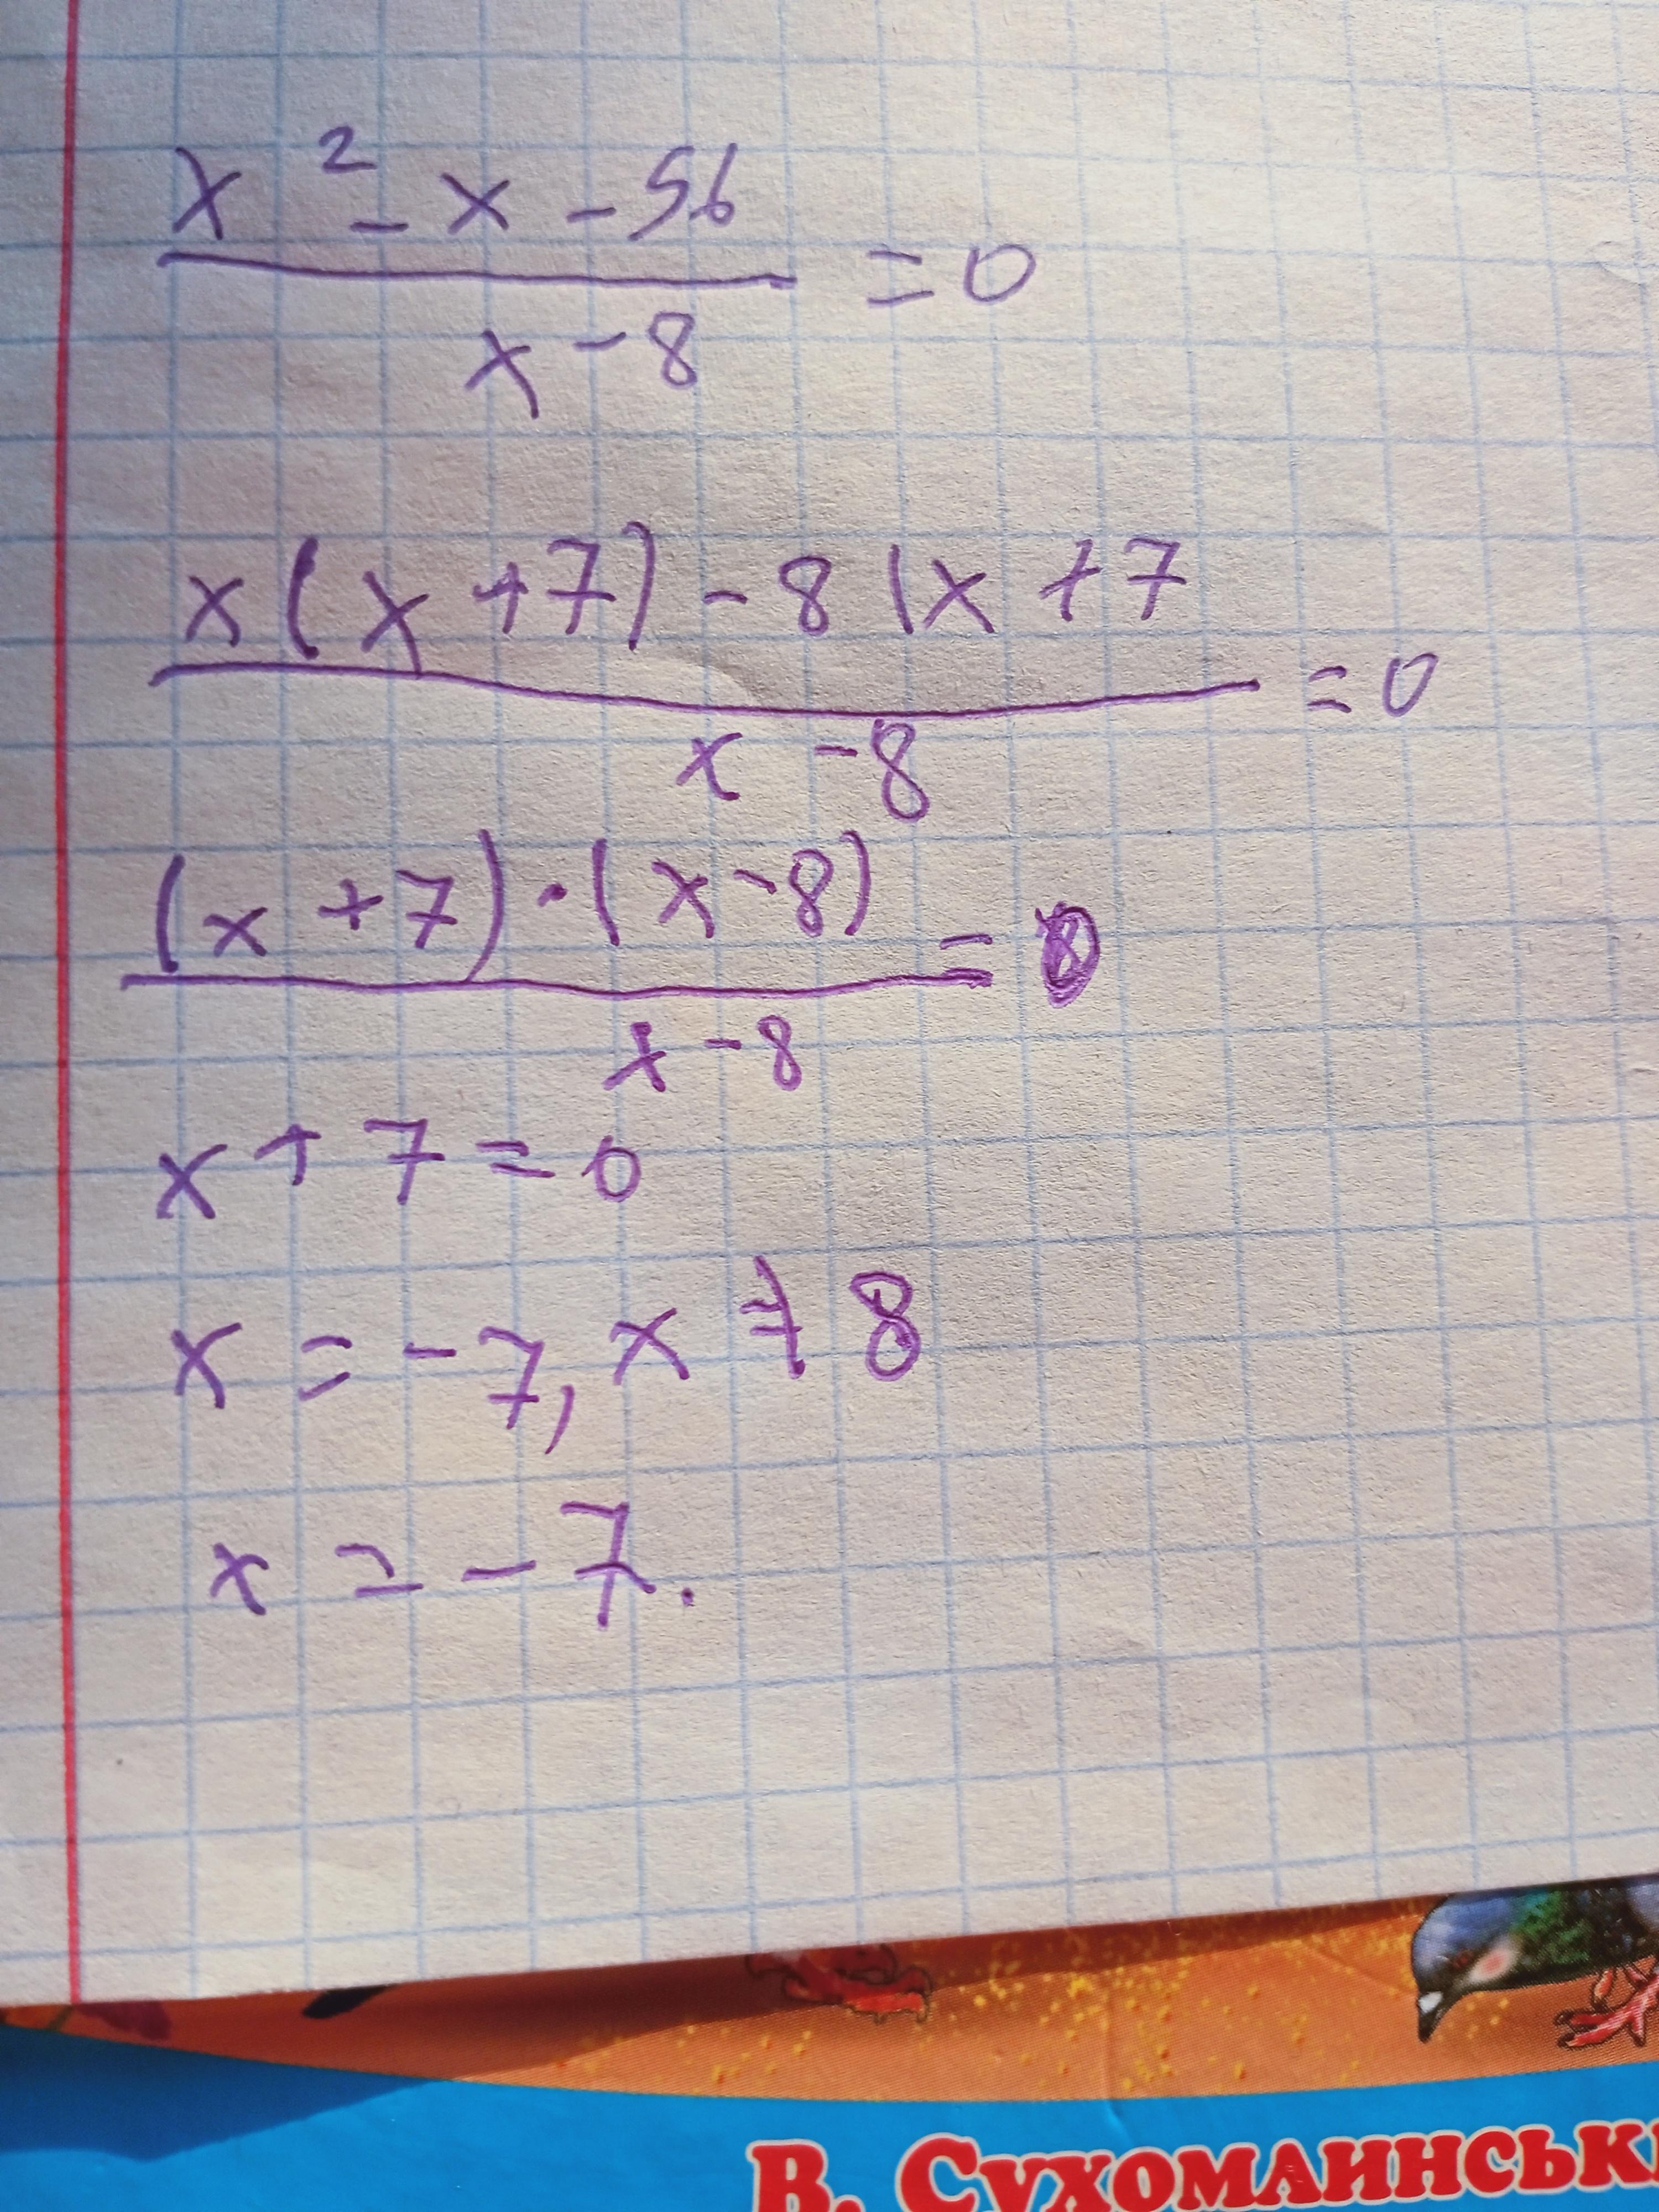 x² - x - 56
x - 8 = 0
x(x+7) - 8(x+7
x - 8 = 0
(x+7)·(x-8) = 0
x - 8
x + 7 = 0
x = -7, x ≠ 8
x = -7.
В. Сухомлинськ